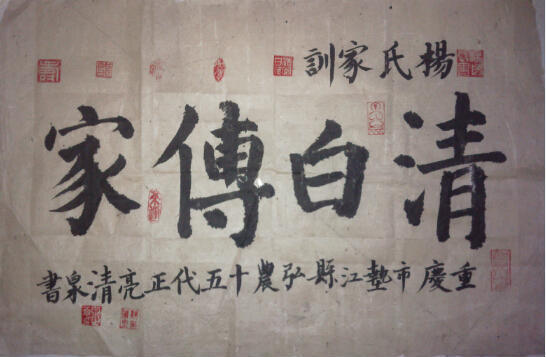 楊氏家訓
清白傳家
重慶市墊江縣弘農十五代正亮清泉書